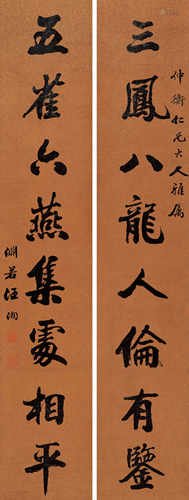 仲衡仁兄大人雅属
三鳳八龍人倫有鑒
五雀六燕集處相平
汪洵